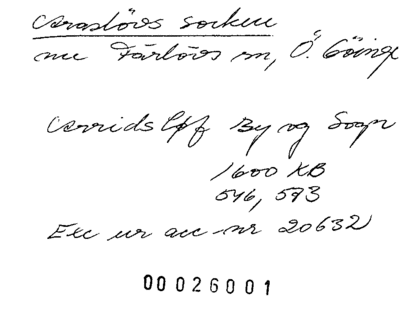 Araslövs socken
nu Färlövs sn, Ö. Göinge
Arridsløff By og Sogn
1600 KB
546, 573
Exc ur acc nr 20632
00026001